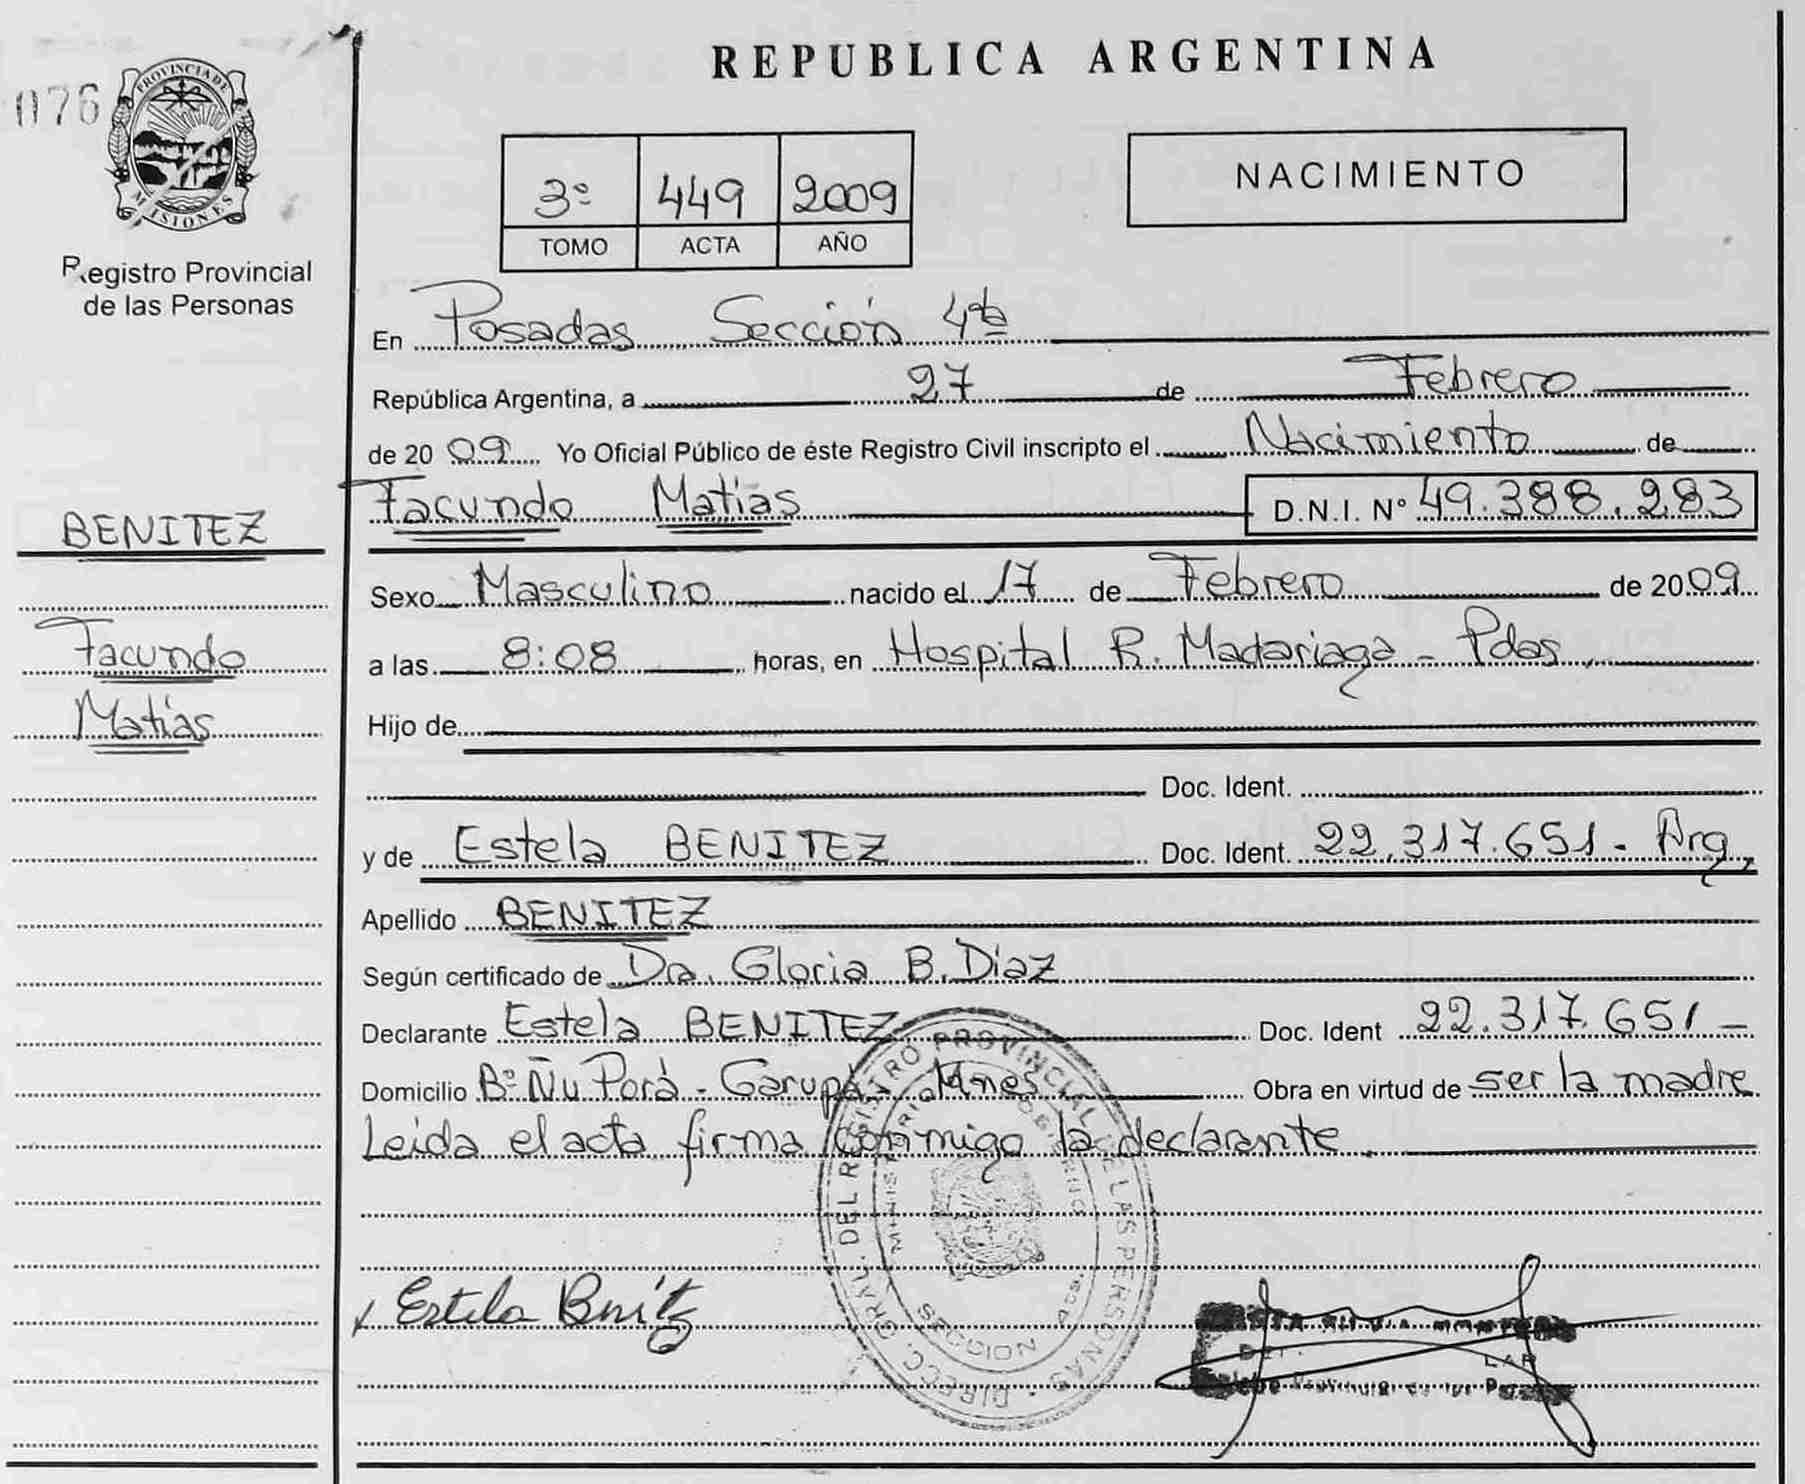 REPUBLICA ARGENTINA
076
PROVINCIA DE
MISIONES
Registro Provincial
de las Personas
3º 449 2009
TOMO ACTA AÑO
NACIMIENTO
En Posadas Sección 4ta
República Argentina, a 27 de Febrero
de 2009 Yo Oficial Público de éste Registro Civil inscripto el Nacimiento de
Facundo Matias D.N.I. Nº 49.388.283
BENITEZ
Sexo Masculino nacido el 17 de Febrero de 2009
Facundo
a las 8:08 horas, en Hospital R. Madariaga - Pdas.
Matias
Hijo de
Doc. Ident.
y de Estela BENITEZ Doc. Ident. 22.317.651 - Arg.
Apellido BENITEZ
Según certificado de Dra. Gloria B. Diaz
Declarante Estela BENITEZ Doc. Ident 22.317.651 -
Domicilio Bº Ñu Porá - Garupá - Mnes Obra en virtud de ser la madre
Leida el acta firma conmigo la declarante.
DIRECC. GRAL. DEL REGISTRO PROVINCIAL DE LAS PERSONAS
SECCION
x Estela Benitz